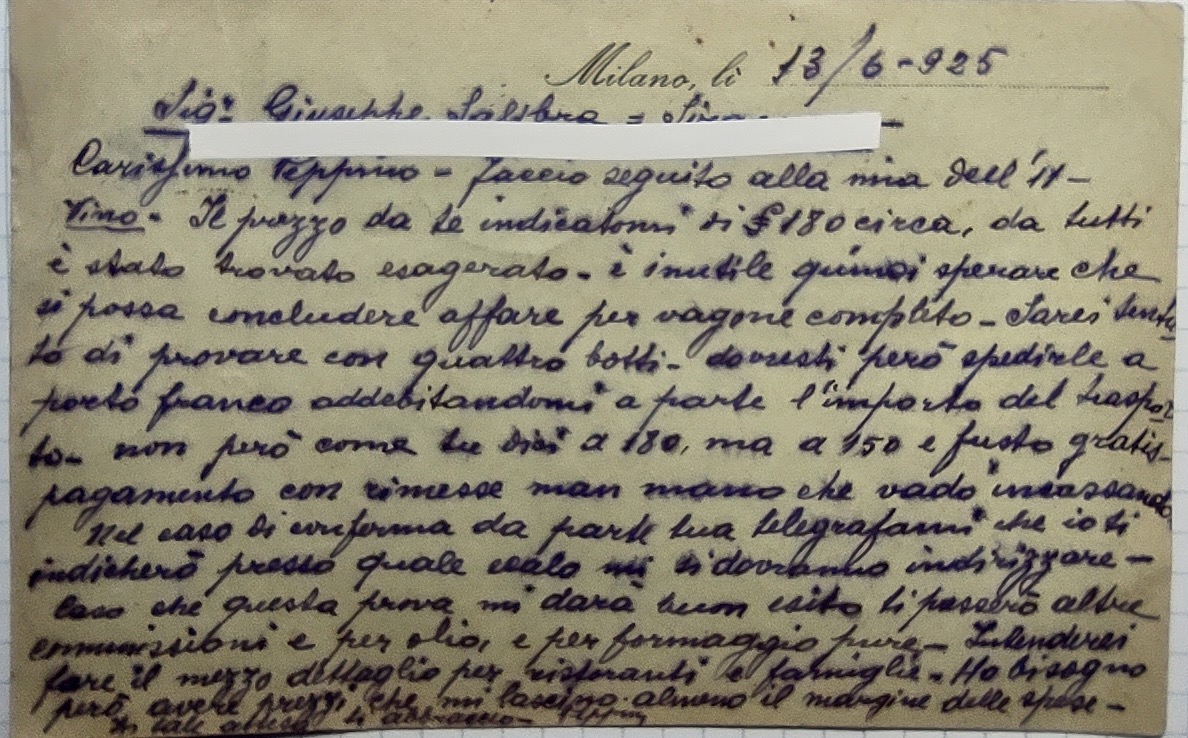 Milano, li 13/6-925
Sigr Giuseppe
Carissimo Peppino - Faccio seguito alla mia dell'11-
Vino - Il prezzo da te indicatomi di £ 180 circa, da tutti
è stato trovato esagerato - è inutile quindi sperare che
si possa concludere affare per vagone completo - Sarei tenta
to di provare con quattro botti - dovresti però spedirle a
porto franco addebitandomi a parte l'importo del traspor
to - non però come tu dici a 180, ma a 150 e fusto gratis -
pagamento con rimesse man mano che vado incassando
Nel caso di conferma da parte tua telegrafami che io ti
indicherò presso quale scalo si dovranno indirizzare -
Caso che questa prova mi darà buon esito ti passerò altre
commissioni e per olio, e per formaggio pure - Intenderei
fare il mezzo dettaglio per ristoranti e famiglie - Ho bisogno
però avere prezzi che mi lascino almeno il margine delle spese -
In tale attesa ti abbraccio - Peppino